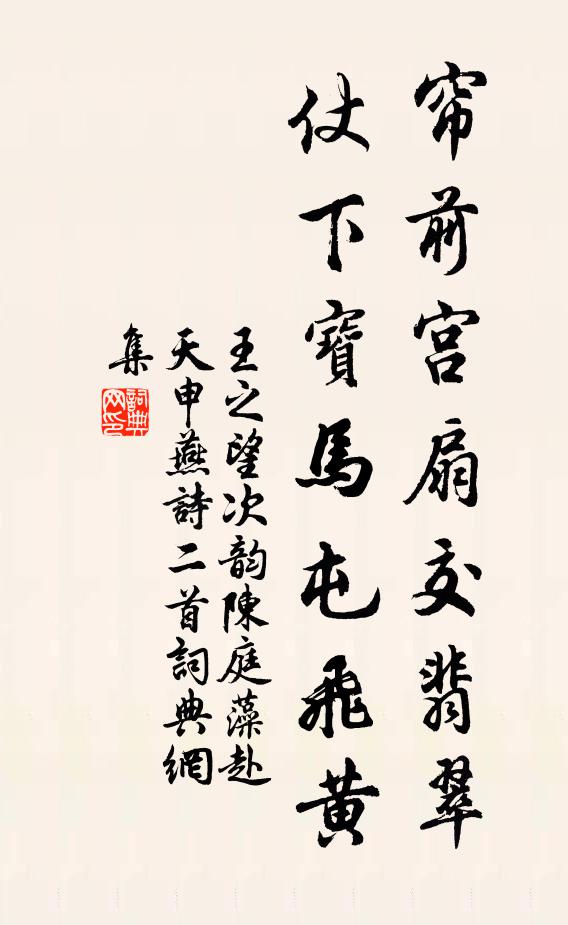 帘前宫扇交翡翠
仗下寶馬屯飛黄
王之望次韵陳庭藻赴
天申燕詩二首詞典網
集
詞典
网印